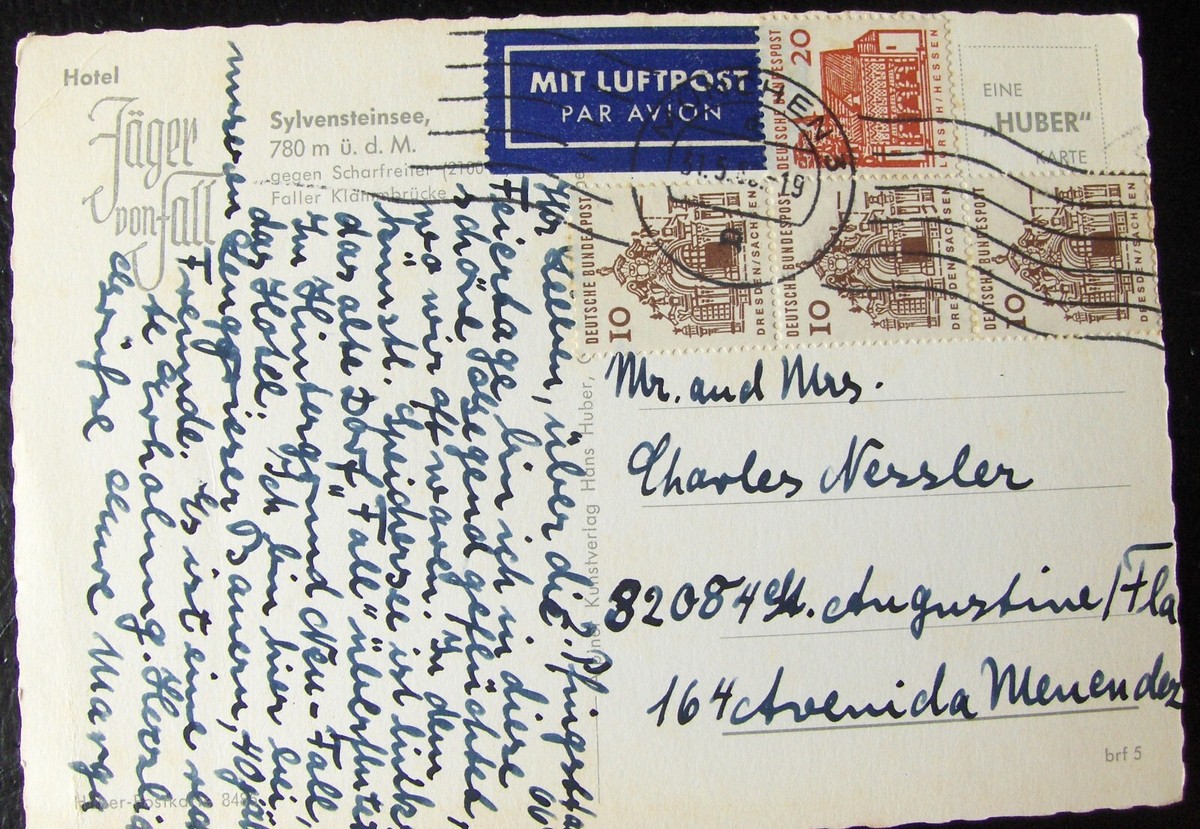 Hotel
Jäger
von Fall
Sylvensteinsee,
780 m ü. d. M.
gegen Scharfreiter (2100
Faller Klammbrücke
MIT LUFTPOST
PAR AVION
DEUTSCHE BUNDESPOST
20
LORSCH/HESSEN
EINE
„HUBER"
KARTE
DEUTSCHE BUNDESPOST
10
DRESDEN/SACHSEN
DEUTSCHE BUNDESPOST
10
DRESDEN/SACHSEN
DEUTSCHE BUNDESPOST
10
DRESDEN/SACHSEN
Ihr Lieben, über die Pfingst
Feiertage bin ich in diese
schöne gegend geflüchtet,
wo wir oft waren. In dem
künstl. Speichersee ist links
das alte Dorf "Fall" überflutet
Im Hintergrund Neu-Fall,
das Hotel. Ich bin hier bei
unseren Lenggrieser Bauern, 40
Freunde. Es ist eine
te Erholung. Herzlic
Grüße Eure Marga
Kunstverlag Hans Huber,
Mr. and Mrs.
Charles Nessler
32084 St. Augustine/Fla
164 Avenida Menendez
Huber-Postkarte 848
brf 5